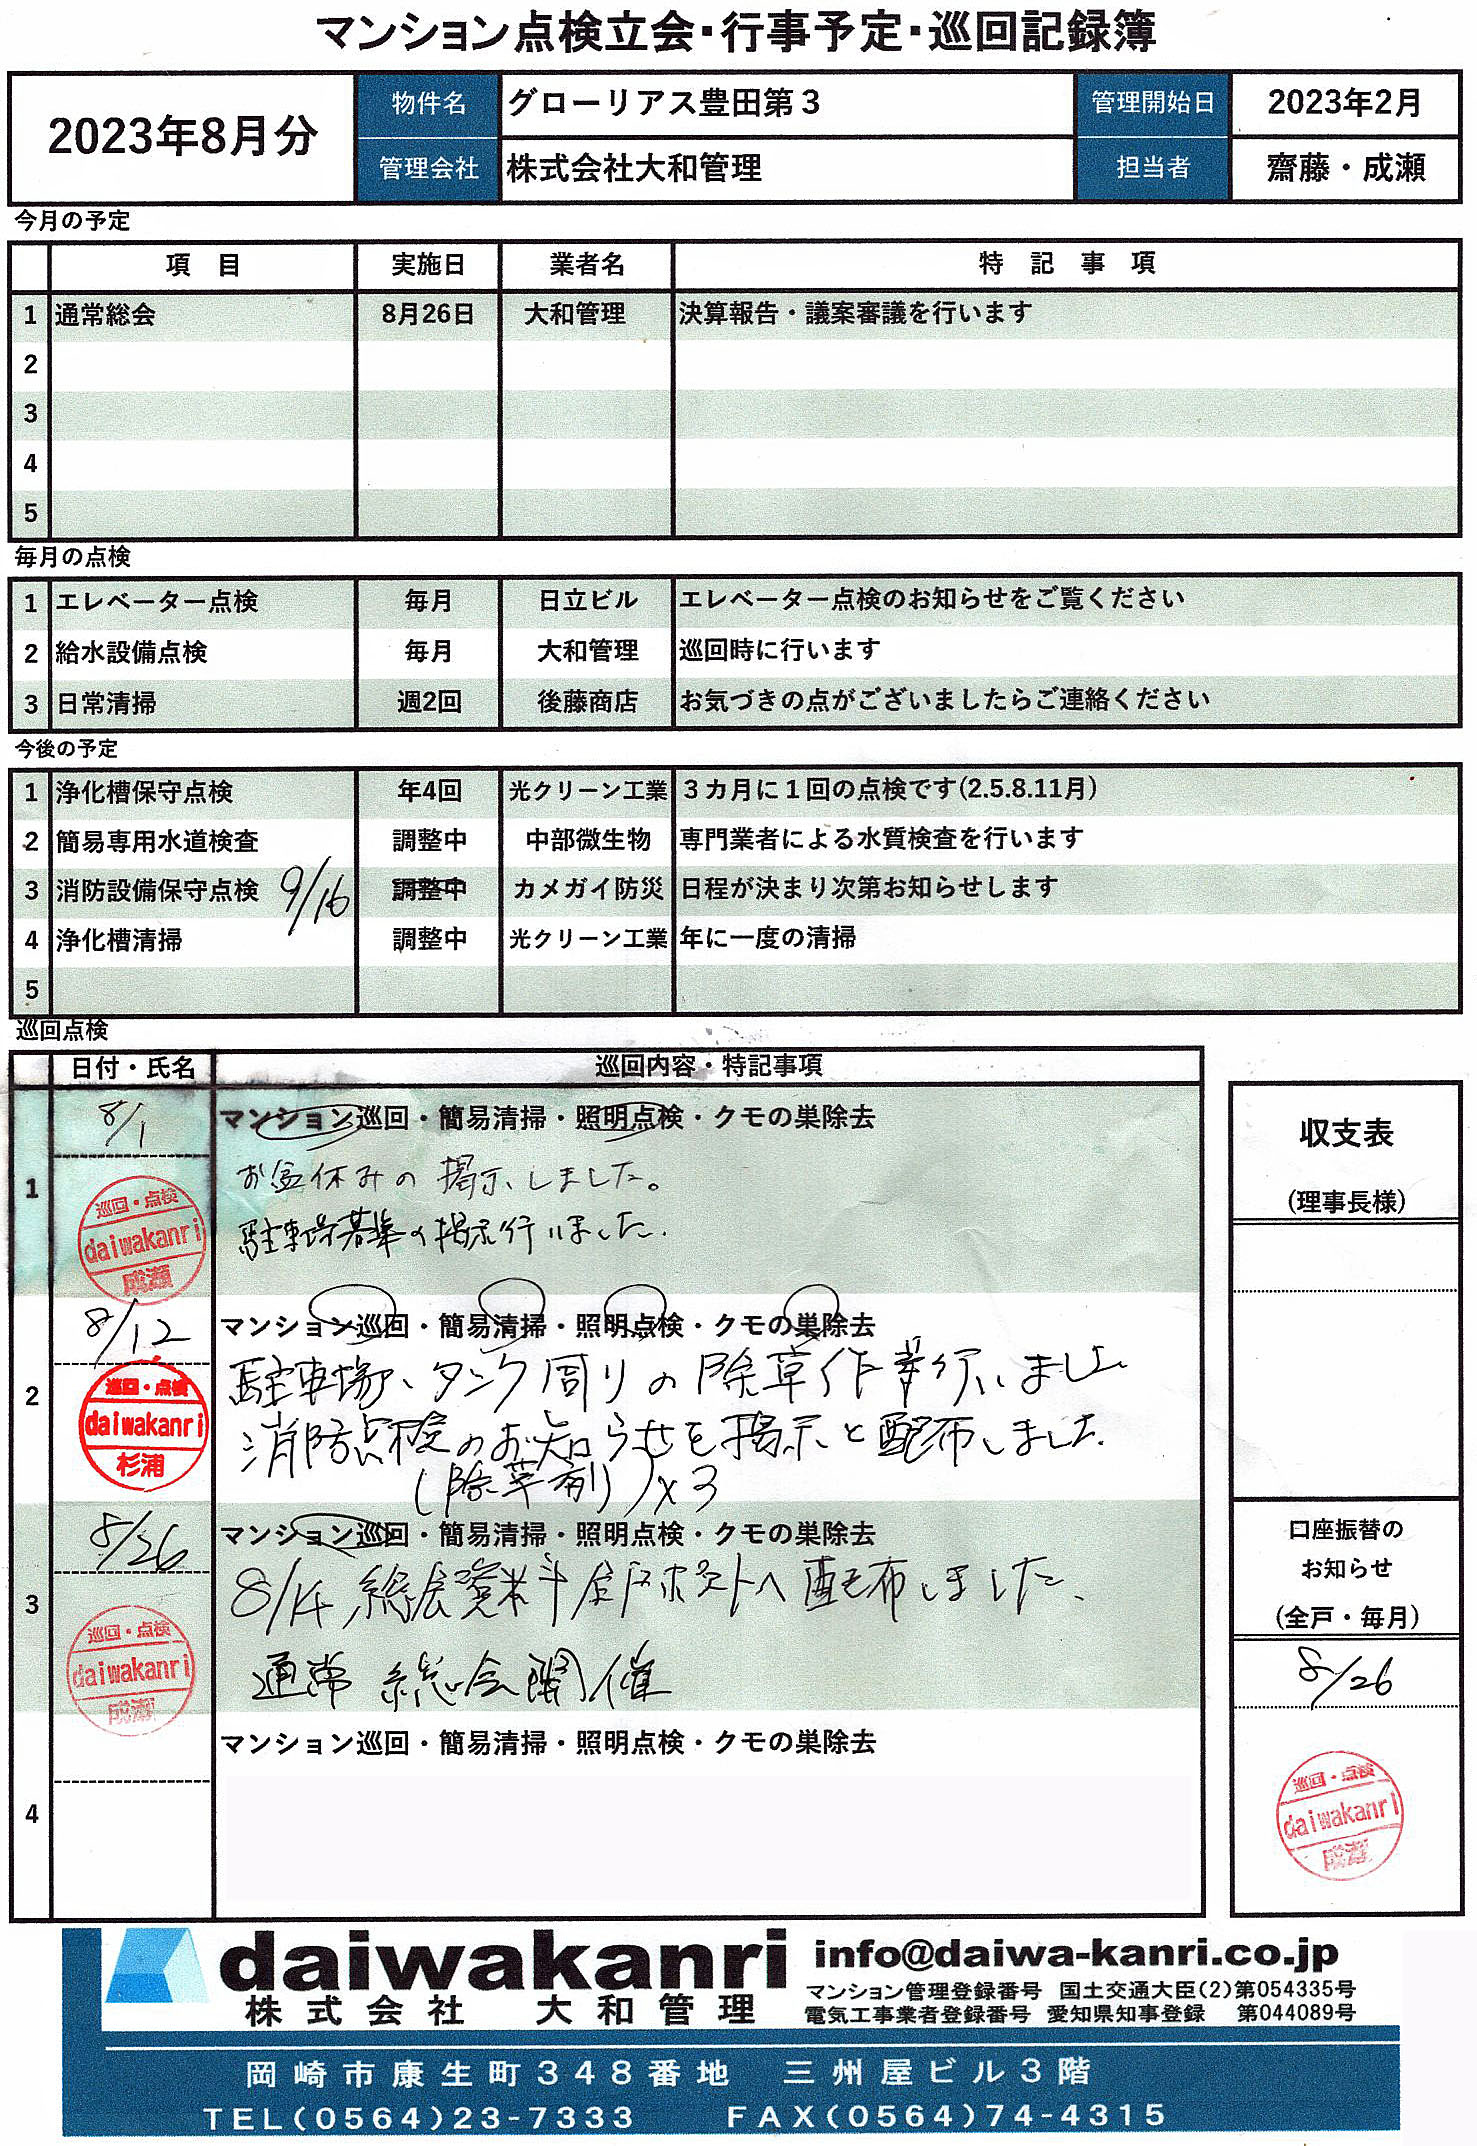 マンション点検立会・行事予定・巡回記録簿
2023年8月分
物件名 グローリアス豊田第3
管理開始日 2023年2月
管理会社 株式会社大和管理
担当者 齋藤・成瀬
今月の予定
項目 実施日 業者名 特記事項
1 通常総会 8月26日 大和管理 決算報告・議案審議を行います
2
3
4
5
毎月の点検
1 エレベーター点検 毎月 日立ビル エレベーター点検のお知らせをご覧ください
2 給水設備点検 毎月 大和管理 巡回時に行います
3 日常清掃 週2回 後藤商店 お気づきの点がございましたらご連絡ください
今後の予定
1 浄化槽保守点検 年4回 光クリーン工業 3カ月に1回の点検です(2.5.8.11月)
2 簡易専用水道検査 調整中 中部微生物 専門業者による水質検査を行います
3 消防設備保守点検 9/16 調整中 カメガイ防災 日程が決まり次第お知らせします
4 浄化槽清掃 調整中 光クリーン工業 年に一度の清掃
5
巡回点検
日付・氏名 巡回内容・特記事項
1 8/1 マンション巡回・簡易清掃・照明点検・クモの巣除去
お盆休みの掲示しました。
駐車場募集の掲示行いました.
巡回・点検
daiwakanri
成瀬
2 8/12 マンション巡回・簡易清掃・照明点検・クモの巣除去
駐車場、タンク周りの除草作業行いました
消防点検のお知らせを掲示と配布しました.
(除草剤)×3
巡回・点検
daiwakanri
杉浦
3 8/26 マンション巡回・簡易清掃・照明点検・クモの巣除去
8/14、総会資料全戸ポストへ配布しました、
通常総会開催
巡回・点検
daiwakanri
成瀬
4 マンション巡回・簡易清掃・照明点検・クモの巣除去
収支表
(理事長様)
口座振替の
お知らせ
(全戸・毎月)
8/26
巡回・点検
daiwakanri
成瀬
daiwakanri
株式会社 大和管理
info@daiwa-kanri.co.jp
マンション管理登録番号 国土交通大臣(2)第054335号
電気工事業者登録番号 愛知県知事登録 第044089号
岡崎市康生町348番地 三州屋ビル3階
TEL(0564)23-7333 FAX(0564)74-4315